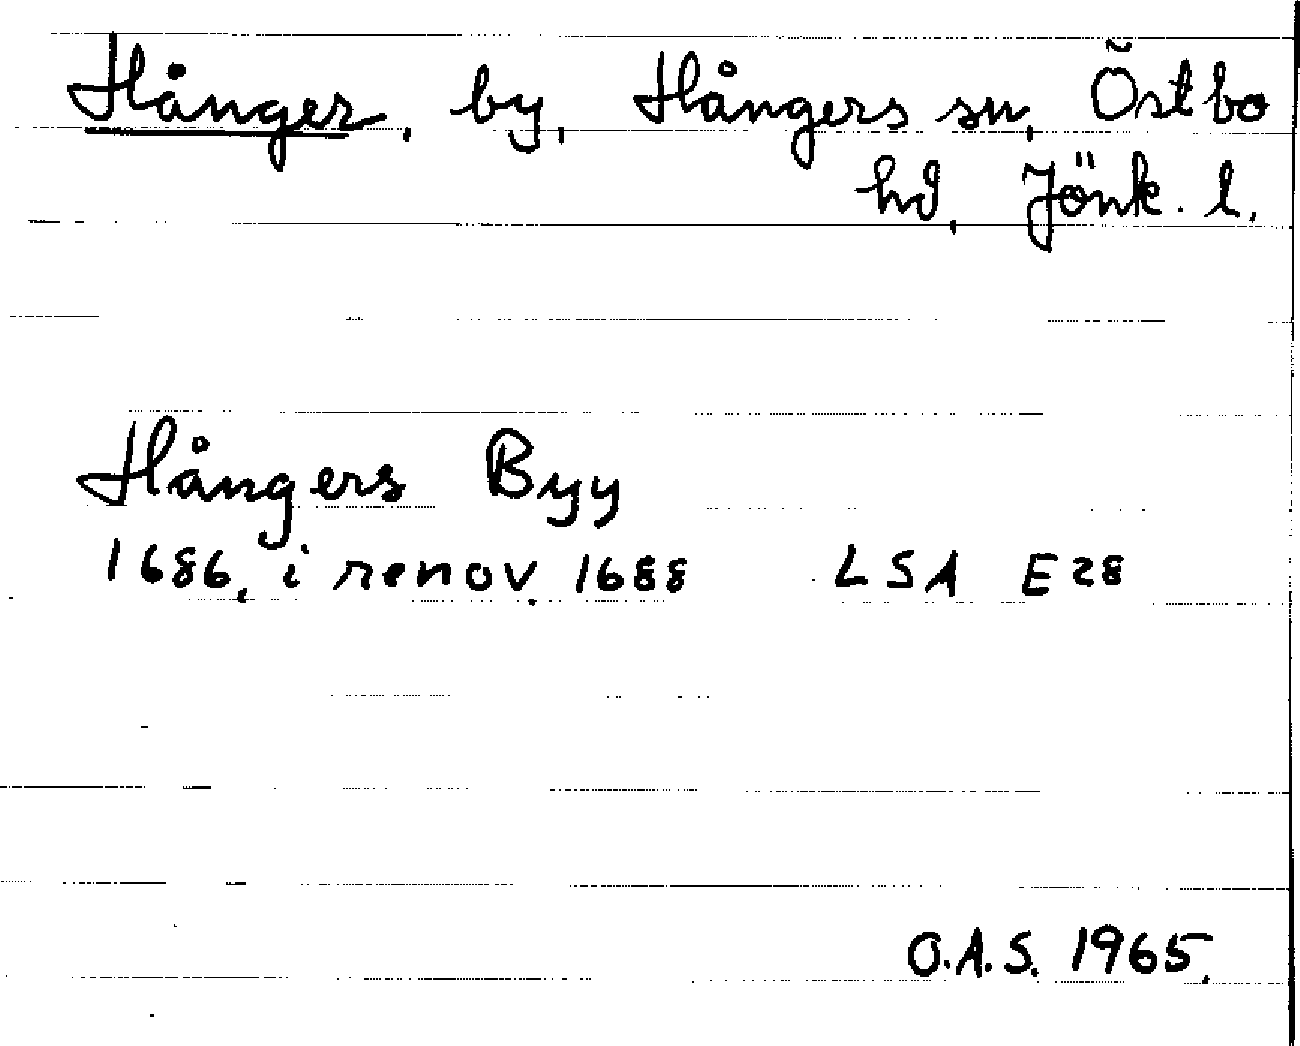 Hånger, by, Hångers sn, Östbo
hd, Jönk. l.
Hångers Byy
1686, i renov. 1688 LSA E28
O.A.S. 1965.